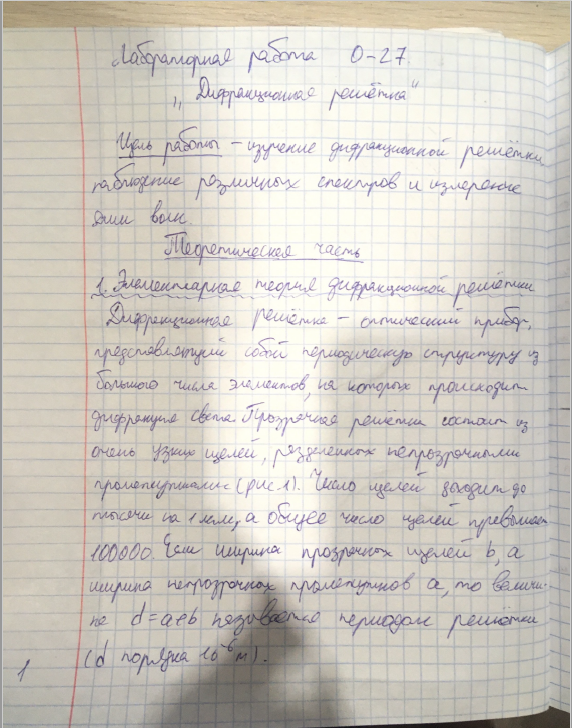 Лабораторная работа О-27.
„Дифракционная решётка"
Цель работы – изучение дифракционной решётки,
наблюдение различных спектров и измерение
длин волн.
Теоретическая часть
1. Элементарная теория дифракционной решётки
Дифракционная решётка – оптический прибор,
представляющий собой периодическую структуру из
большого числа элементов, на которых происходит
дифракция света. Прозрачная решётка состоит из
очень узких щелей, разделенных непрозрачными
промежутками (рис.1). Число щелей доходит до
тысячи на 1 мм, а общее число щелей превышает
100000. Если ширина прозрачных щелей b, а
ширина непрозрачных промежутков a, то величи-
на d=a+b называется периодом решётки
(d порядка 10⁻⁶ м).
1